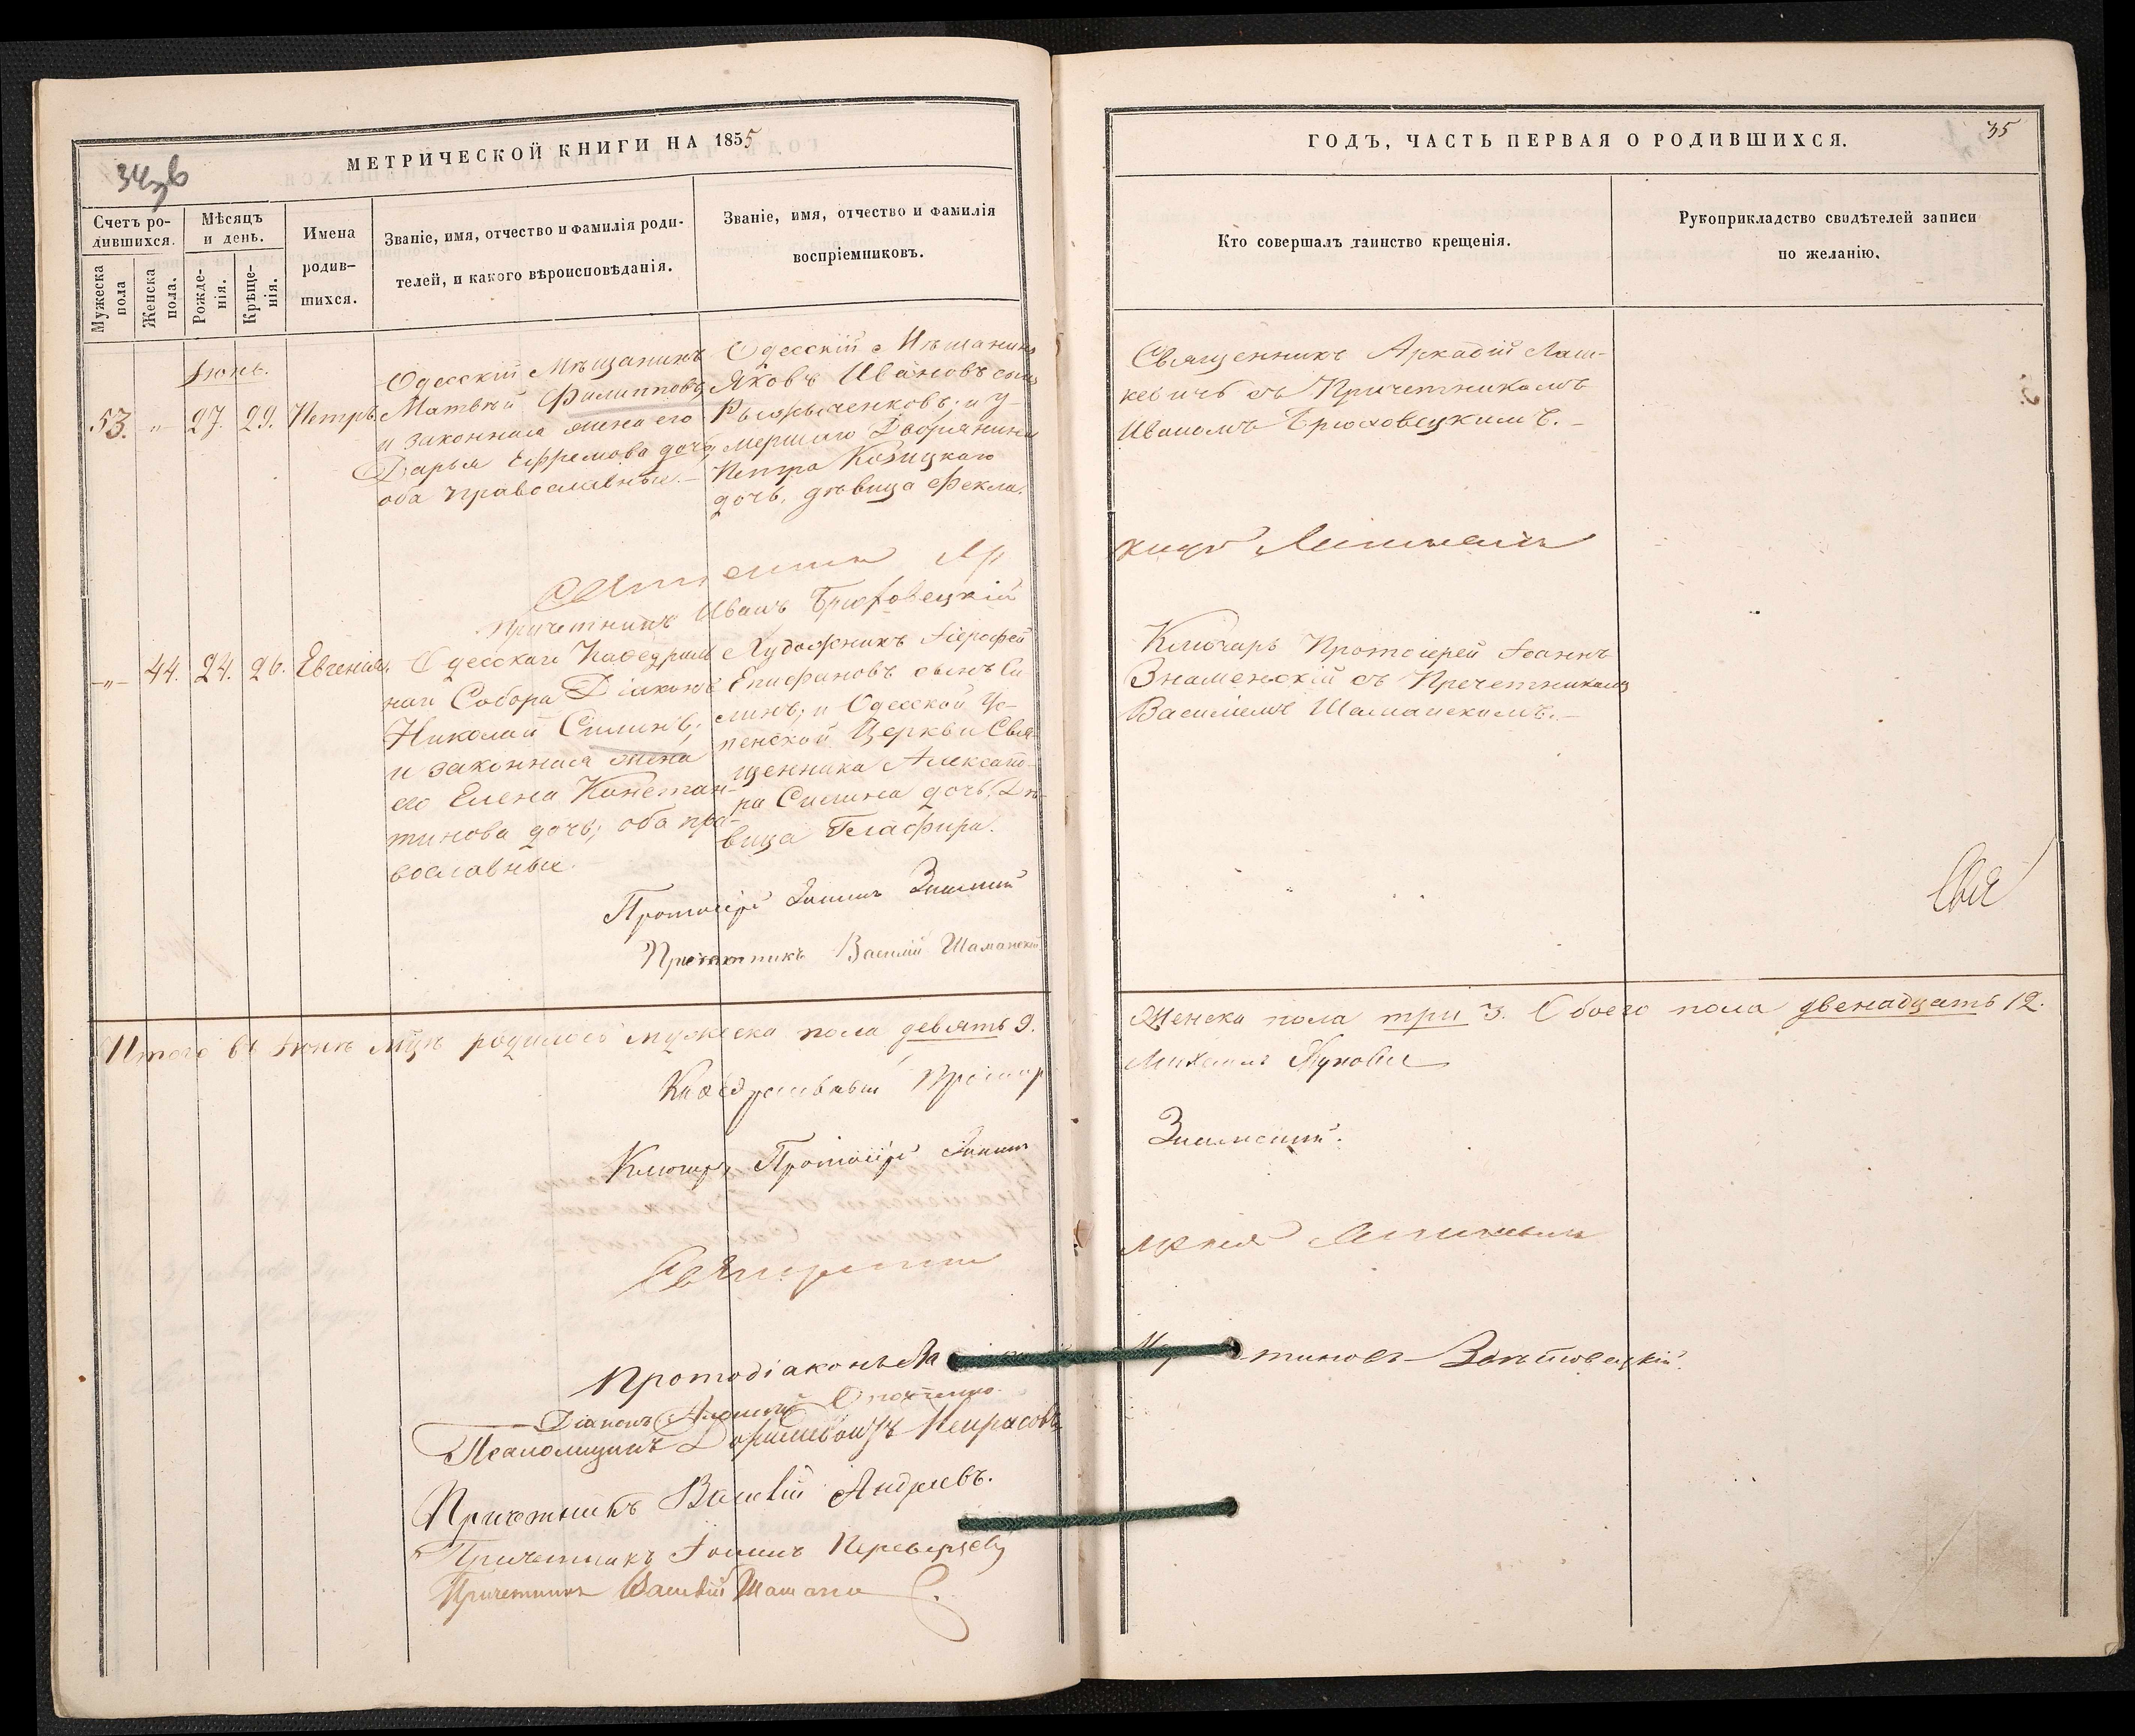 34 зв
МЕТРИЧЕСКОЙ КНИГИ НА 1855
Счетъ ро-
дившихся.
Мѣсяцъ
и день.
Имена
родив-
шихся.
Званіе, имя, отчество и фамилія роди-
телей, и какого вѣроисповѣданія.
Званіе, имя, отчество и фамилія
воспріемниковъ.
Мужеска
пола
Женска
пола.
Рожде-
нія.
Крѣще-
нія.
Іюнь.
53. -„- 27. 29. Петръ.
Одесскій Мѣщанинъ
Матвѣй Филипповъ,
и законная жена его
Дарья Ефремова дочь,
оба православные.-
Одесскій Мѣщанинъ
Яковъ Ивановъ сынъ
умершаго Дворянина
Петра Козицкаго
дочь, дѣвица Фекла.
Причетникъ Иванъ Брюховецкій
-„- 44. 24. 26. Евгенія.
Одесскаго Каѳедраль
наго Собора Діаконъ
Николай Силинъ,
и законная жена
его Елена Констан-
тинова дочь; оба пра-
вославные.
Художникъ Іероѳей
Епифановъ сынъ Си
линъ; и Одесской Ус-
пенской Церкви Свя-
щенника Александ-
ра Силина дочь, Дѣ-
вица Глафира.
Протоіерей Іоаннъ Знаменскій
Причетникъ Василій Шаманскій
Итого въ Іюнѣ м҃цѣ родилось мужеска пола девять 9.
Каѳедральный Протоіер
Ключарь Протоіерей Іоаннъ
Протодіаконъ
Діаконъ Алексій
Псаломщикъ Некрасовъ
Причетникъ Василій Андреевъ.
Причетникъ Іоаннъ Переверзевъ
Причетникъ Василій Шаманс
ГОДЪ, ЧАСТЬ ПЕРВАЯ О РОДИВШИХСЯ.
35
Кто совершалъ таинство крещенія.
Рукоприкладство свидѣтелей записи
по желанію.
Священникъ Аркадій Лаш-
кевичъ съ Причетникомъ
Иваномъ Брюховецкимъ.-
Ключарь Протоіерей Іоаннъ
Знаменскій съ Причетникомъ
Василіемъ Шаманскимъ.-
Свя
Женска пола три 3. Обоего пола двенадцать 12.
Михаилъ Куновъ
Знаменскій.